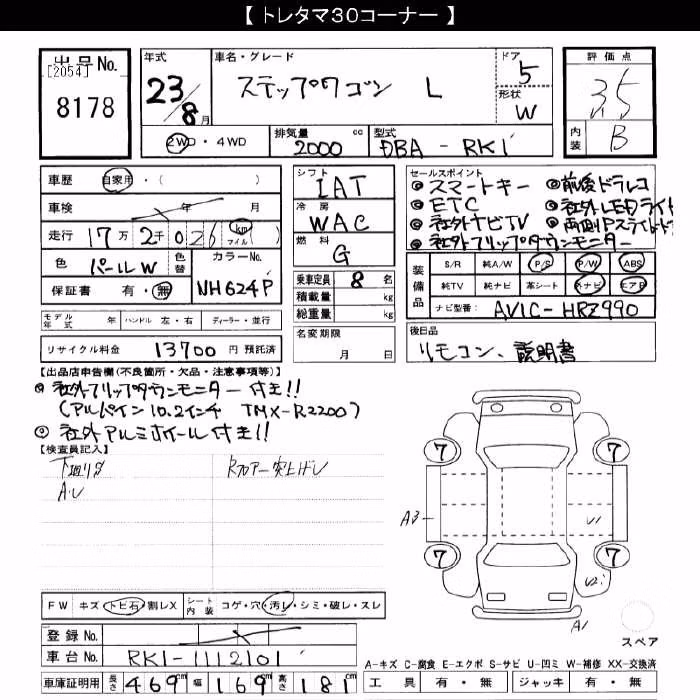 【 トレタマ30コーナー 】
出品No.
[2054]
8178
年式
23/8月
車名・グレード
ステップワゴン L
ドア
5
形状
W
評価点
3.5
内装
B
2WD・4WD
排気量 cc
2000
型式
DBA - RK1
車歴 自家用・( )
車検 年 月
走行 17万2千026 km マイル ( )
色 パールW 色替
カラーNo.
NH624P
保証書 有・無
シフト
IAT
冷房
WAC
燃料
G
乗車定員 8 名
積載量 kg
総重量 kg
名変期限
月 日
セールスポイント
◎スマートキー ◎前後ドラレコ
◎ETC ◎社外LEDライト
◎社外ナビTV ◎両側Pスライドドア
◎社外フリップダウンモニター
装備品
S/R 純A/W P/S P/W ABS
純TV 純ナビ 革シート 社ナビ エアB
ナビ型番: AVIC-HRZ990
モデル年式 年 ハンドル 左・右 ディーラー・並行
リサイクル料金 13700 円 預託済
後日品
リモコン、説明書
【出品店申告欄(不良箇所・欠品・注意事項等)】
◎社外フリップダウンモニター付き!!
(アルパイン10.2インチ TMX-R2200)
◎社外アルミホイール付き!!
【検査員記入】
下廻りサ Rフロアー突上げし
A・U
7
7
A3
U1
7
7
U2
A1
スペア
FW キズ・トビ石・割レX
シート内装 コゲ・穴・汚レ・シミ・破レ・スレ
登録No.
車台No. RK1-1112101
車庫証明用 長さ 469cm 幅 169cm 高さ 181cm
A-キズ C-腐食 E-エクボ S-サビ U-凹ミ W-補修 XX-交換済
工具 有・無 ジャッキ 有・無